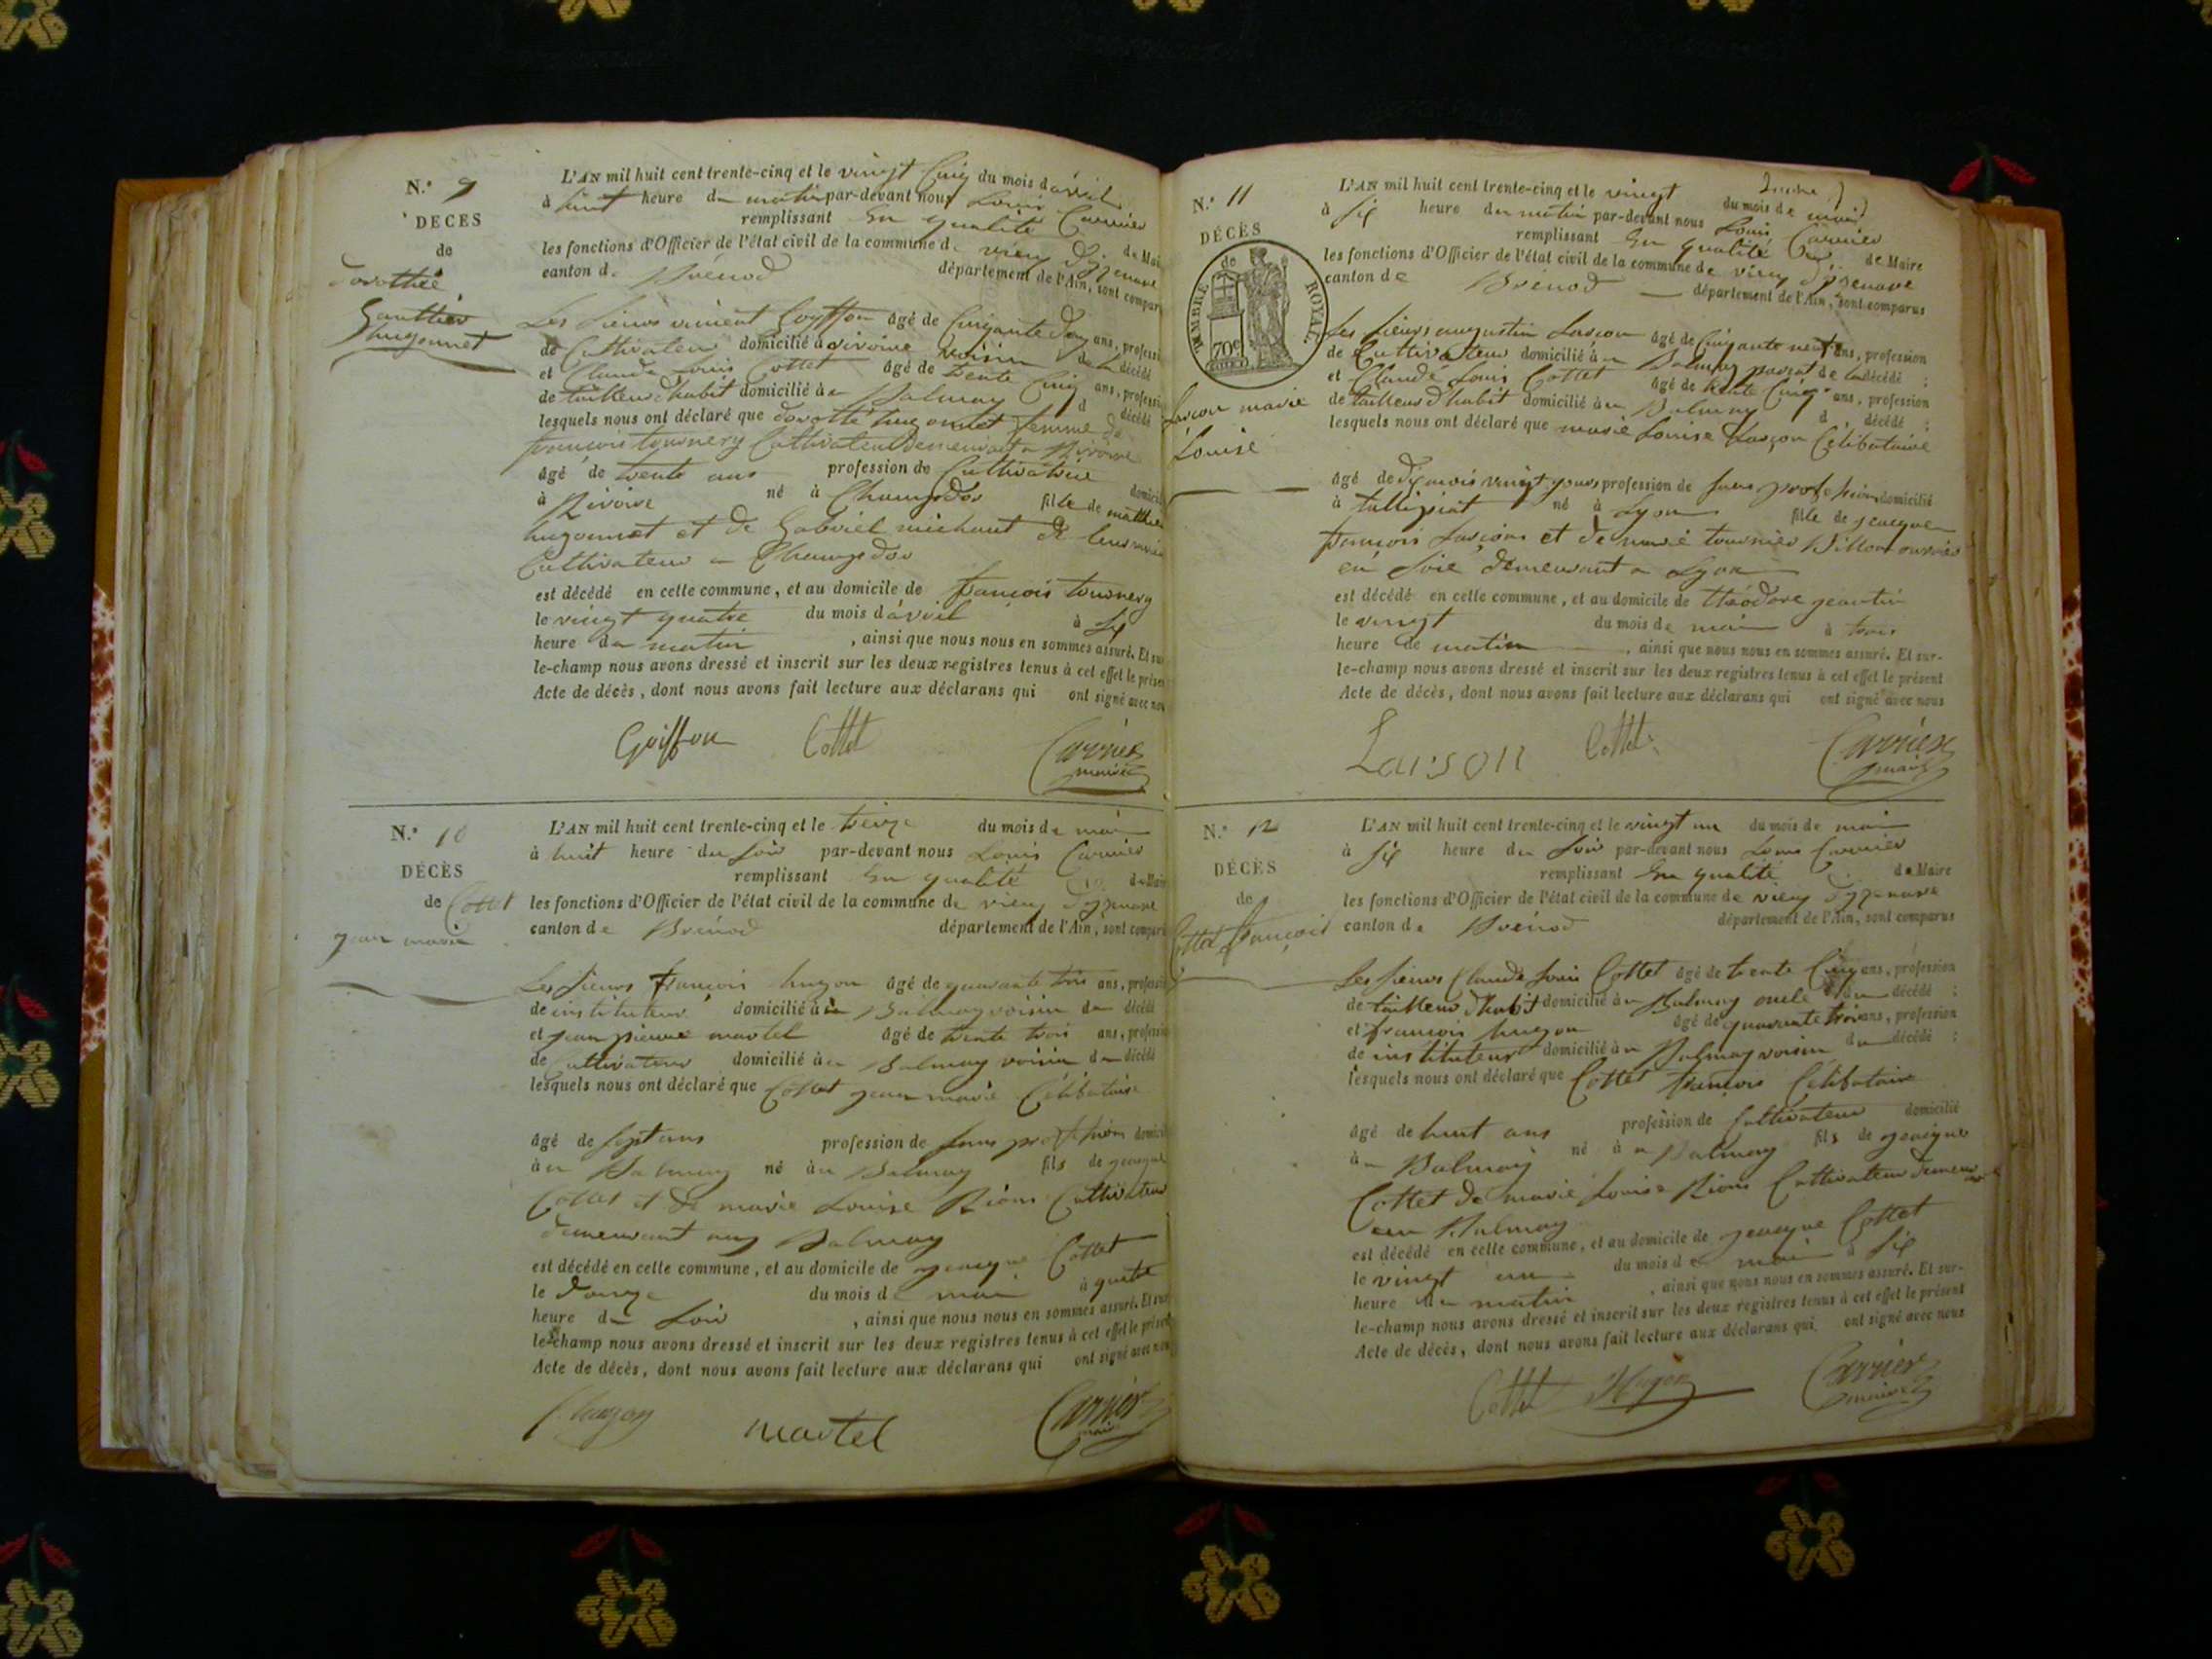 N.° 9
DECES
de
dorothée
Gauthier
hugonnet
L'AN mil huit cent trente-cinq et le vingt Cinq du mois d'avril
à huit heure du matin par-devant nous Louis Carrier
remplissant En qualité de Mai
les fonctions d'Officier de l'état civil de la commune de vieu d'izenave
canton de Brénod département de l'Ain, sont compar
Les sieurs vincent Goyffon âgé de Cinquante deux ans, professi
de Cultivateur domicilié à rivoire voisin de la décédé
et Claude Louis Cottet âgé de trente Cinq ans, professi
de tailleur d'habit domicilié au Balmay d décédé
lesquels nous ont déclaré que dorotté hugonnet femme de
françois tournery Cultivateur demeurant a Rivoire
âgé de trente ans profession de Cultivatrice domicil
à Rivoire né à Champdor fille de matthieu
hugonnet et de Gabriel michaut de leur vivant
Cultivateur a Champdor
est décédé en cette commune, et au domicile de françois tournery
le vingt quatre du mois d'avril à six
heure du matin, ainsi que nous nous en sommes assuré. Et sur
le-champ nous avons dressé et inscrit sur les deux registres tenus à cet effet le présen
Acte de décès, dont nous avons fait lecture aux déclarans qui ont signé avec nou
Goiffon Cottet Carrier
maire
N.° 10
DÉCÈS
de Cottet
jean marie
L'AN mil huit cent trente-cinq et le treize du mois de mai
à huit heure du soir par-devant nous Louis Carrier
remplissant En qualité de Mair
les fonctions d'Officier de l'état civil de la commune de vieu d'izenave
canton de Brénod département de l'Ain, sont compar
Les sieurs françois hugon âgé de quarante trois ans, professi
de instituteur domicilié au Balmay voisin du décédé
et jean pierre martel âgé de trente trois ans, professi
de Cultivateur domicilié au Balmay voisin du décédé
lesquels nous ont déclaré que Cottet jean marie Célibataire
âgé de sept ans profession de sans profession domicil
à u Balmay né au Balmay fils de jeacque
Cottet et de marie Louise Rions Cultivateur
demeurant aux Balmay
est décédé en cette commune, et au domicile de jeacque Cottet
le douze du mois de mai à quatre
heure du soir, ainsi que nous nous en sommes assuré. Et sur
le-champ nous avons dressé et inscrit sur les deux registres tenus à cet effet le présen
Acte de décès, dont nous avons fait lecture aux déclarans qui ont signé avec nou
hugon martel Carrier
maire
N.° 11
DÉCÈS
de
TIMBRE ROYAL
70c
Larçon marie
Louise
L'AN mil huit cent trente-cinq et le vingt du mois de mai
à six heure du matin par-devant nous Louis Carrier
remplissant En qualité de Maire
les fonctions d'Officier de l'état civil de la commune de vieu d'izenave
canton de Brénod département de l'Ain, sont comparus
Les sieurs augustin Larçon âgé de Cinquante neuf ans, profession
de Cultivateur domicilié au Balmay parrat de la décédé ;
et Claude Louis Cottet âgé de trente Cinq ans, profession
de tailleur d'habit domicilié au Balmay d décédé ;
lesquels nous ont déclaré que marie Louise Larçon Célibataire
âgé de dix mois vingt jours profession de sans profession domicilié
à tallipiat né à Lyon fille de jeacque
françois Larçon et de marie tournier Billon ouvrier
en soie demeurant a Lyon
est décédé en cette commune, et au domicile de théodore jeantin
le vingt du mois de mai à trois
heure de matin, ainsi que nous nous en sommes assuré. Et sur-
le-champ nous avons dressé et inscrit sur les deux registres tenus à cet effet le présent
Acte de décès, dont nous avons fait lecture aux déclarans qui ont signé avec nous
Larson Cottet Carrier
maire
N.° 12
DÉCÈS
de
Cottet françois
L'AN mil huit cent trente-cinq et le vingt un du mois de mai
à six heure du soir par-devant nous Louis Carrier
remplissant En qualité de Maire
les fonctions d'Officier de l'état civil de la commune de vieu d'izenave
canton de Brénod département de l'Ain, sont comparus
Les sieurs Claude Louis Cottet âgé de trente Cinq ans, profession
de tailleur d'habit domicilié au Balmay oncle du décédé ;
et françois hugon âgé de quarante trois ans, profession
de instituteur domicilié au Balmay voisin du décédé ;
lesquels nous ont déclaré que Cottet françois Célibataire
âgé de huit ans profession de Cultivateur domicilié
à u Balmay né à u Balmay fils de jeacque
Cottet de marie Louise Rions Cultivateur demeurant
au Balmay
est décédé en cette commune, et au domicile de jeacque Cottet
le vingt un du mois de mai à six
heure du matin, ainsi que nous nous en sommes assuré. Et sur-
le-champ nous avons dressé et inscrit sur les deux registres tenus à cet effet le présent
Acte de décès, dont nous avons fait lecture aux déclarans qui ont signé avec nous
Cottet Hugon Carrier
maire